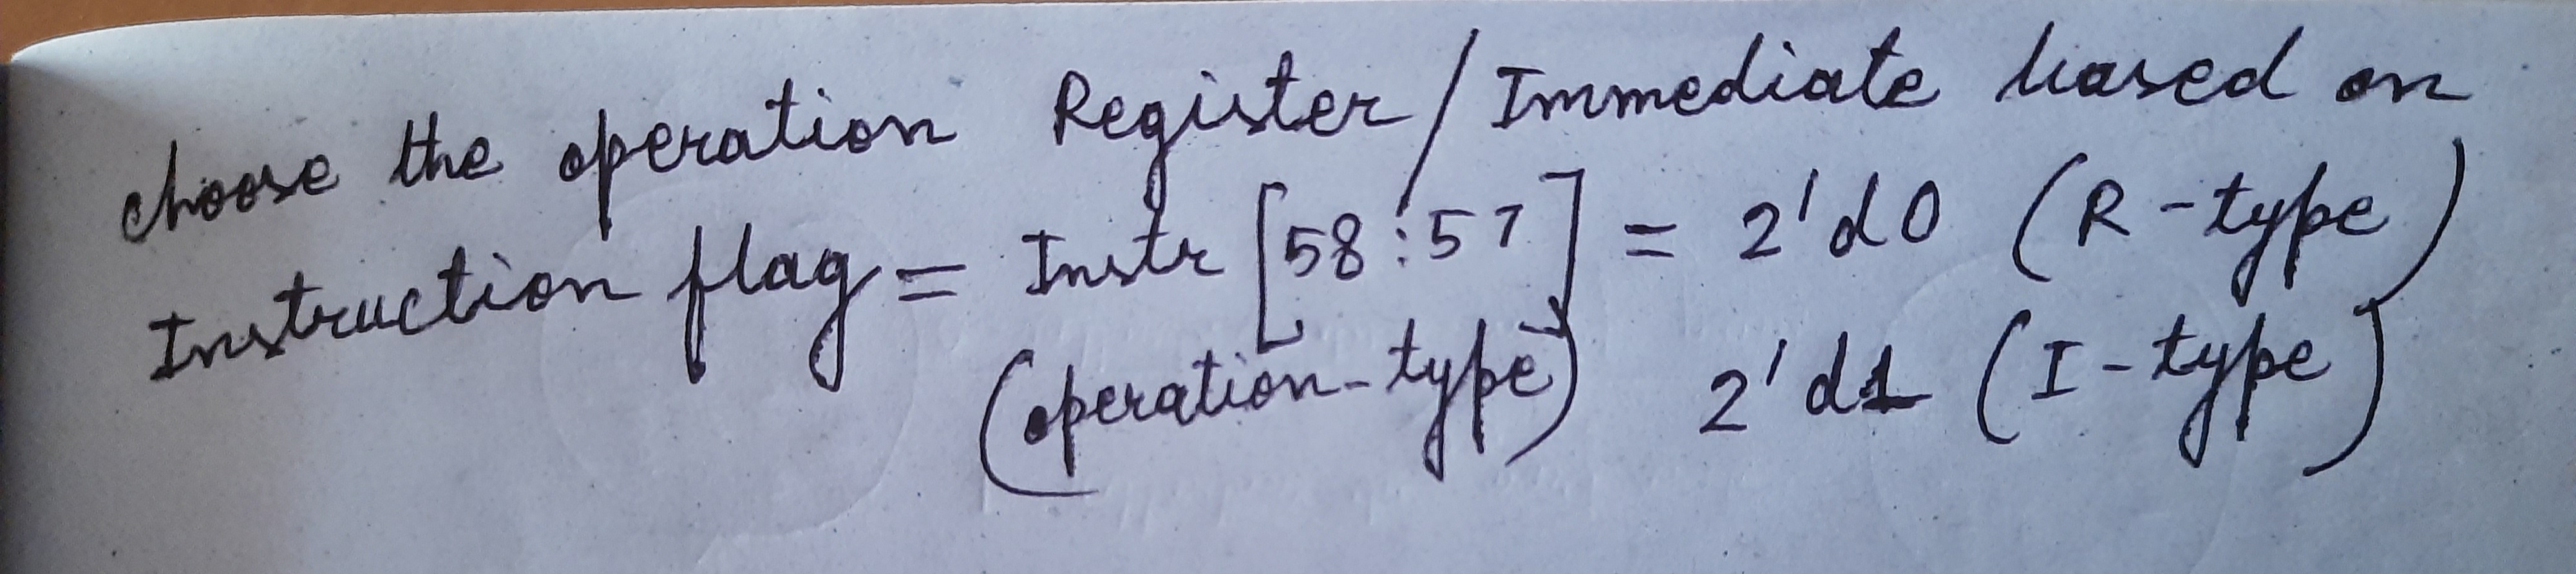 choose the operation Register/Immediate based on
Instruction flag = Instr [58:57] = 2'd0 (R-type)
(operation-type) 2'd1 (I-type)